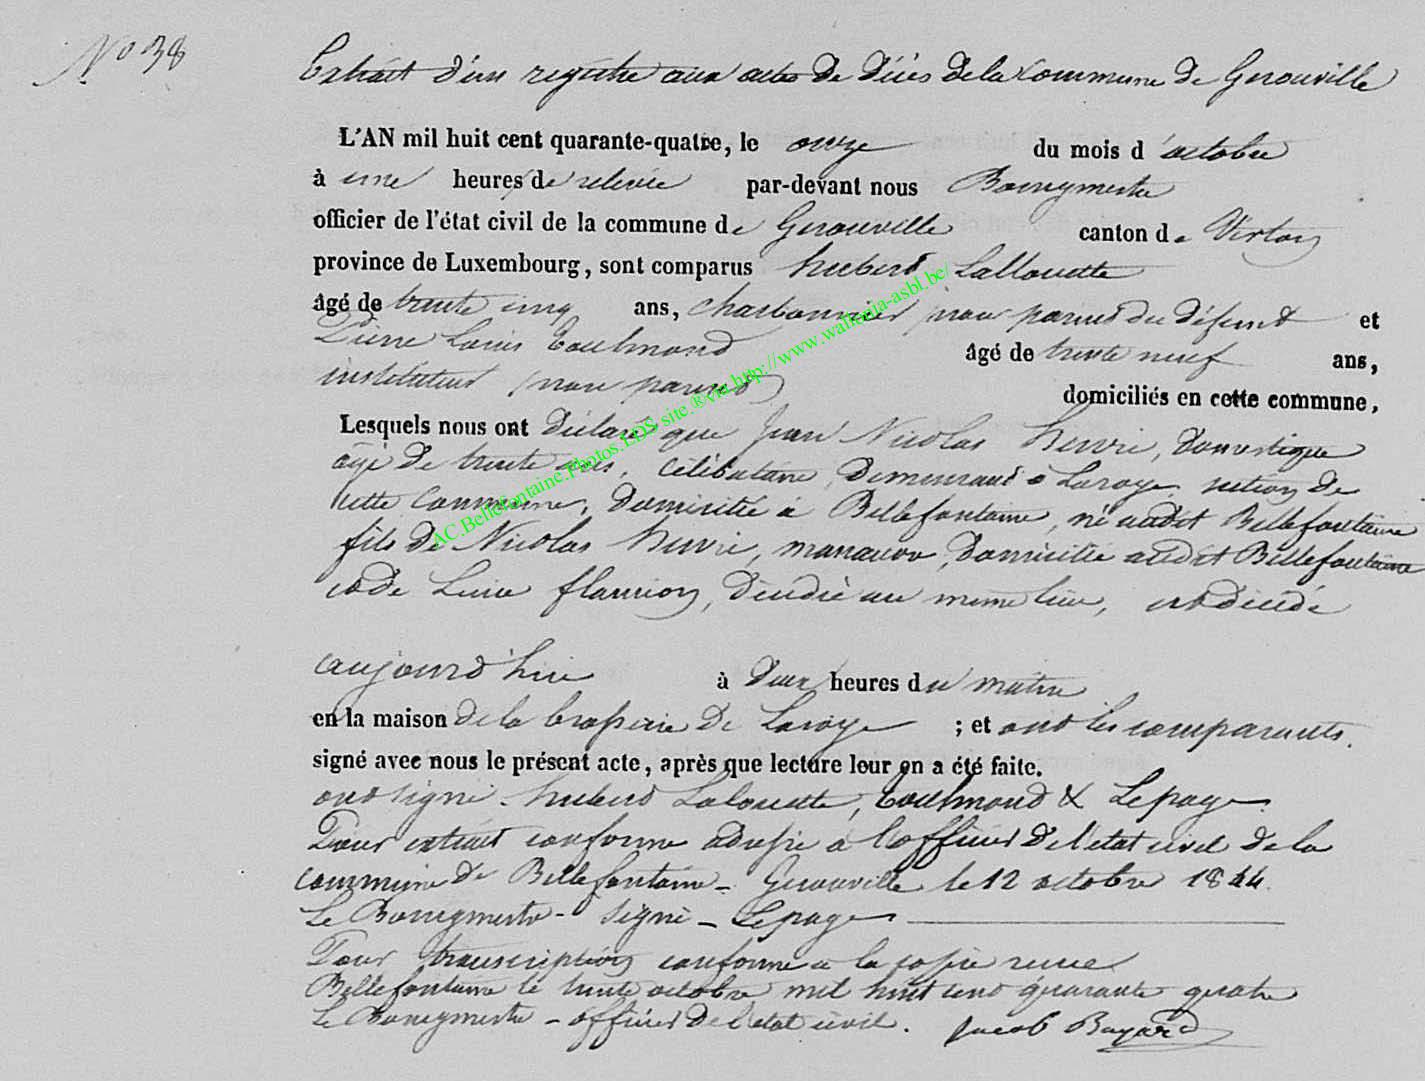 No 38
Extrait d'un registre aux actes de décès de la Commune de Gerouville
L'AN mil huit cent quarante-quatre, le onze du mois d'octobre
à une heures de relevée par-devant nous Bourgmestre
officier de l'état civil de la commune de Gerouville canton de Virton
province de Luxembourg, sont comparus hubert Lallouette
âgé de trente cinq ans, charbonnier, non parent du défunt et
Pierre Louis Toulmond âgé de trente neuf ans,
instituteur, non parent domiciliés en cette commune,
Lesquels nous ont déclaré que Jean Nicolas henri, domestique
âgé de trente ans, célibataire, demeurant à Lasoye, section de
cette Commune, domicilié à Bellefontaine, né audit Bellefontaine
fils de Nicolas henri, manœuvre, domicilié audit Bellefontaine
et de flamion, décédée au même lieu, est décédé
aujourd'hui à deux heures du matin
en la maison de la brasserie de Lasoye ; et ont les comparants
signé avec nous le présent acte, après que lecture leur en a été faite.
ont signé hubert Lalouette, Toulmond & Lepage
Pour extrait conforme adressé à l'officier de l'état civil de la
commune de Bellefontaine - Gerouville le 12 octobre 1844.
Le Bourgmestre - Signé - Lepage
Pour transcription conforme à la copie reçue
Bellefontaine le trente octobre mil huit cent quarante quatre
Le Bourgmestre - officier de l'état civil. Jacob Bayard
AC.Bellefontaine.Photos.LDS site.®via http://www.wallonia-asbl.be/